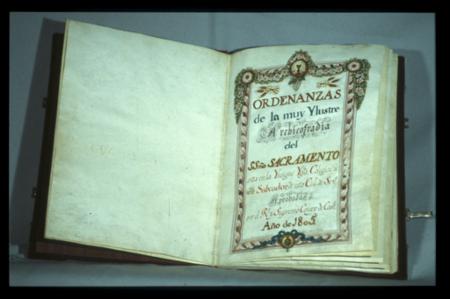 ORDENANZAS
de la muy Ylustre
Archicofradia
del
SSmo SACRAMENTO
sita en la Ynsigne Ygla Colegial
del Salvador de esta Ciud. de
Aprobadas
por el Rl y Supremo Consejo de Cast
Año de 1805